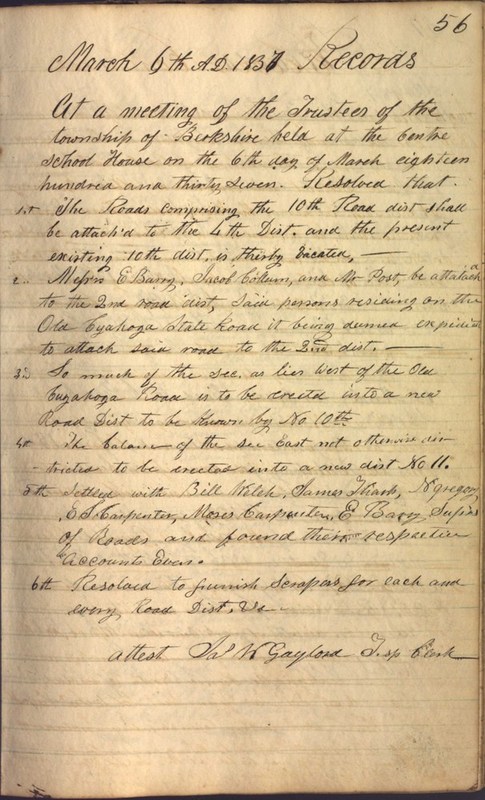 56
March 6th A.D. 1837 Records
At a meeting of the Trustees of the
township of Berkshire held at the Centre
School House on the 6th day of March eighteen
hundred and thirty seven. Resolved that.
1st The Roads comprising the 10th Road dist shall
be attach'd to the 4th Dist. and the present
existing 10th dist. is therby vacated, —
2.. Messrs E Barry, Jacob and Mr Post, be attatched
to the 2nd road dist, Said persons residing on the
Old Cyahoga State Road it being dumed expedient
to attach said road to the 2nd dist. —
3d So much of the sec. as lies West of the Old
Cuyahoga Road is to be erected into a new
Road Dist to be known by No 10th
4th The balance of the sec East not otherwise dis
-tricted to be erected into a new dist No 11.
5th Settled with Bill Welch, James N Gregory,
E S Carpenter, Moses Carpenter, E Barry, Supers
of Roads and found their respective
Accounts Even.
6th Resolved to furnish Scrapers for each and
every Road Dist. &c
attest Jas W Gaylord Tsp Clerk